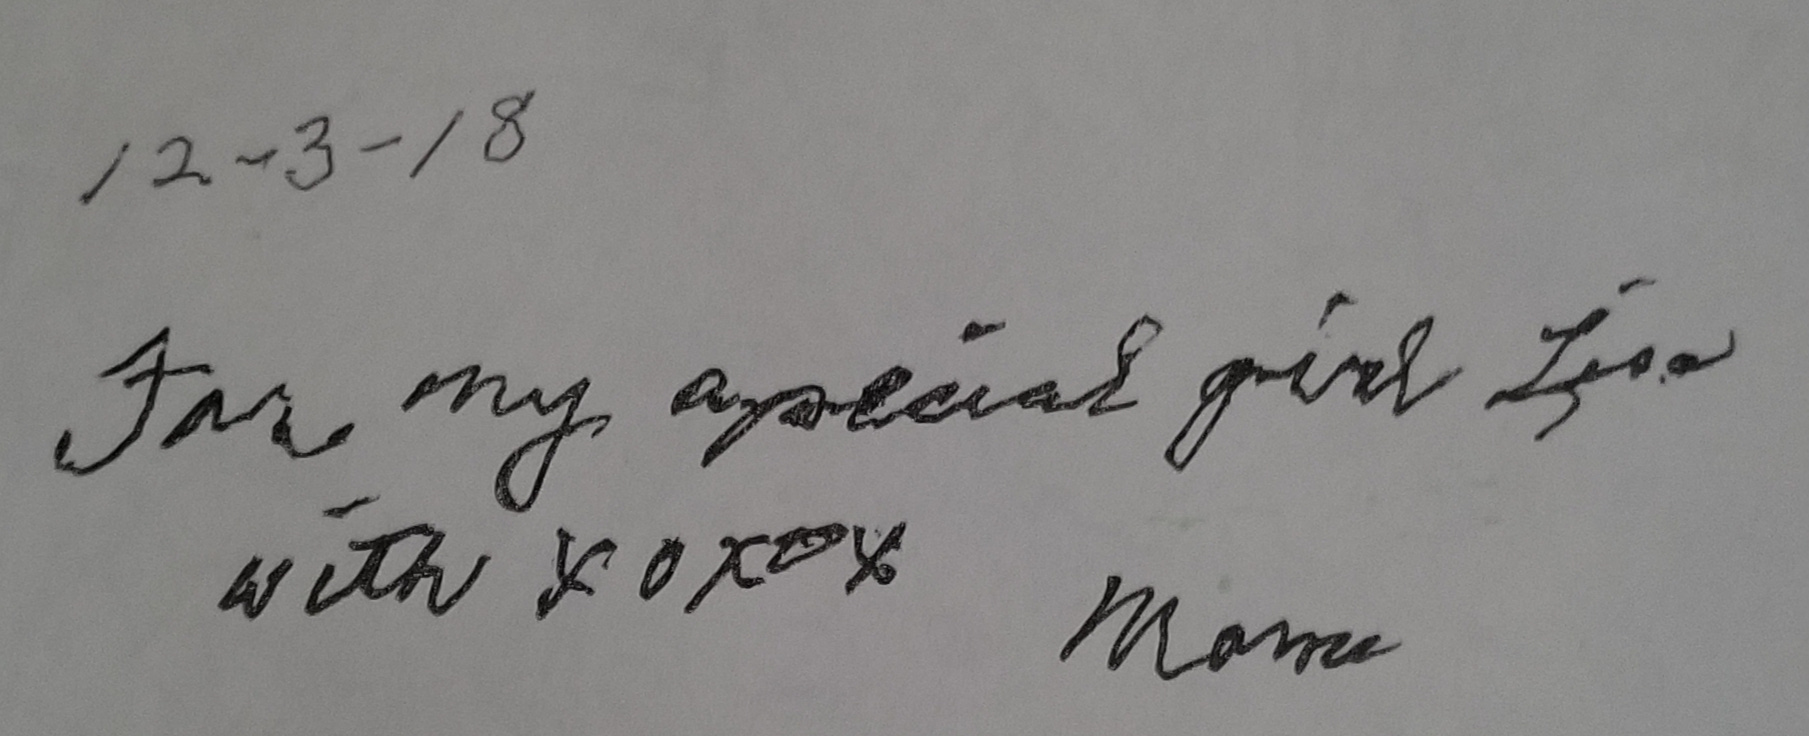 12-3-18
For my special girl Lisa
with xoxox
Mom